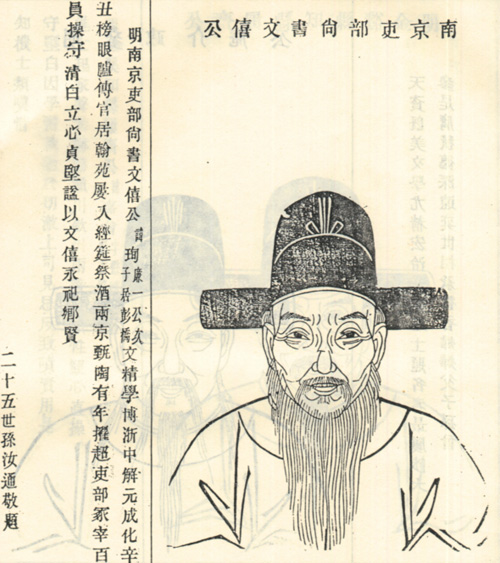 南京吏部尚書文僖公
明南京吏部尚書文僖公諱珣康一公次子居彭橋文精學博浙中解元成化辛
丑榜眼臚傳官居翰苑屢入經筵祭酒兩京甄陶有年擢超吏部冢宰百
員操守清白立心貞堅諡以文僖永祀鄉賢
二十五世孫汝敬題